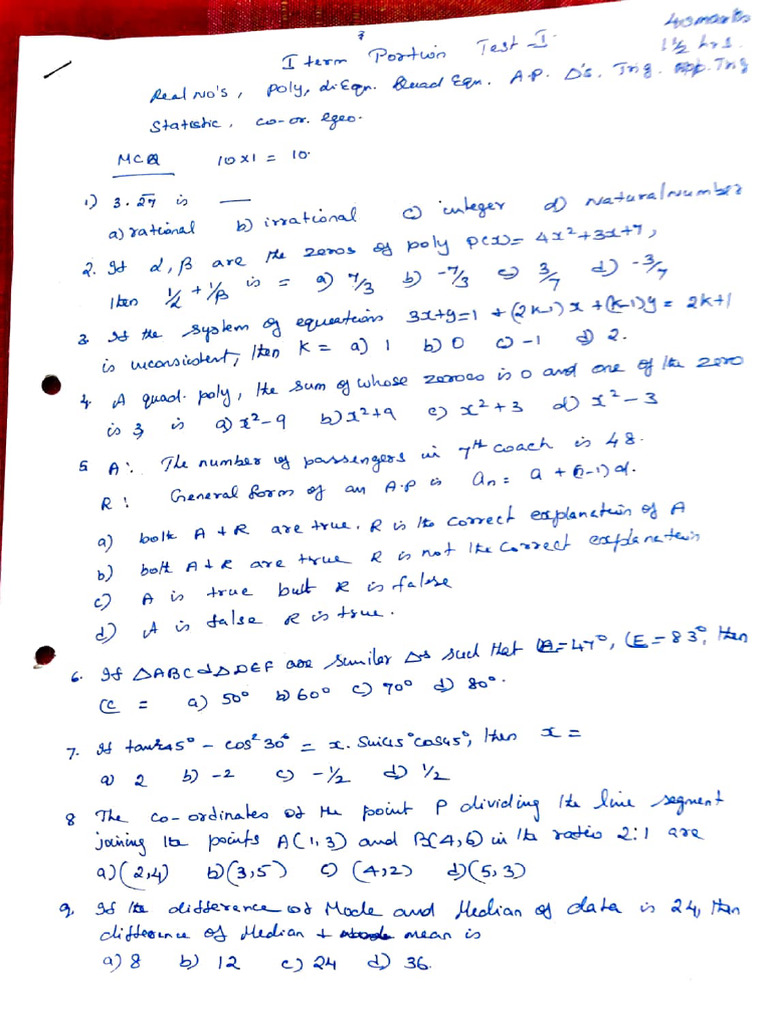 40 marks
I term Portion Test - I
1½ hrs.
Real No's, poly, di Eqn. Quad Eqn. A.P. Δ's. Trig. app. Trig
Statistic, co-or. egeo.
MCQ 10 x 1 = 10.
1) 3.2̅7̅ is ___
a) rational b) irrational c) integer d) natural number
2. If α, β are the zeros of poly P(x) = 4x²+3x+7,
then 1/2 + 1/β is = a) 7/3 b) -7/3 c) 3/7 d) -3/7
3. If the system of equations 3x+y=1 + (2k-1)x + (k-1)y = 2k+1
is inconsistent, then k = a) 1 b) 0 c) -1 d) 2.
4. A quad. poly, the sum of whose zeroes is 0 and one of the zero
is 3, is a) x²-9 b) x²+9 c) x²+3 d) x²-3
5 A: The number of passengers in 7th coach is 48.
R: General form of an A.P is an = a + (n-1)d.
a) both A + R are true. R is the correct explanation of A
b) both A + R are true R is not the correct explanation
c) A is true but R is false
d) A is false R is true.
6. If ΔABC & ΔDEF are similar Δs such that ∠A=47°, ∠E=83°, then
∠C = a) 50° b) 60° c) 70° d) 80°.
7. If tan²45° - cos²30° = x. Sin45° cos45°, then x =
a) 2 b) -2 c) -1/2 d) 1/2
8 The co-ordinates of the point P dividing the line segment
joining the points A(1,3) and B(4,6) in the ratio 2:1 are
a) (2,4) b) (3,5) c) (4,2) d) (5,3)
9. If the difference of Mode and Median of data is 24, then
difference of Median + mean is
a) 8 b) 12 c) 24 d) 36.